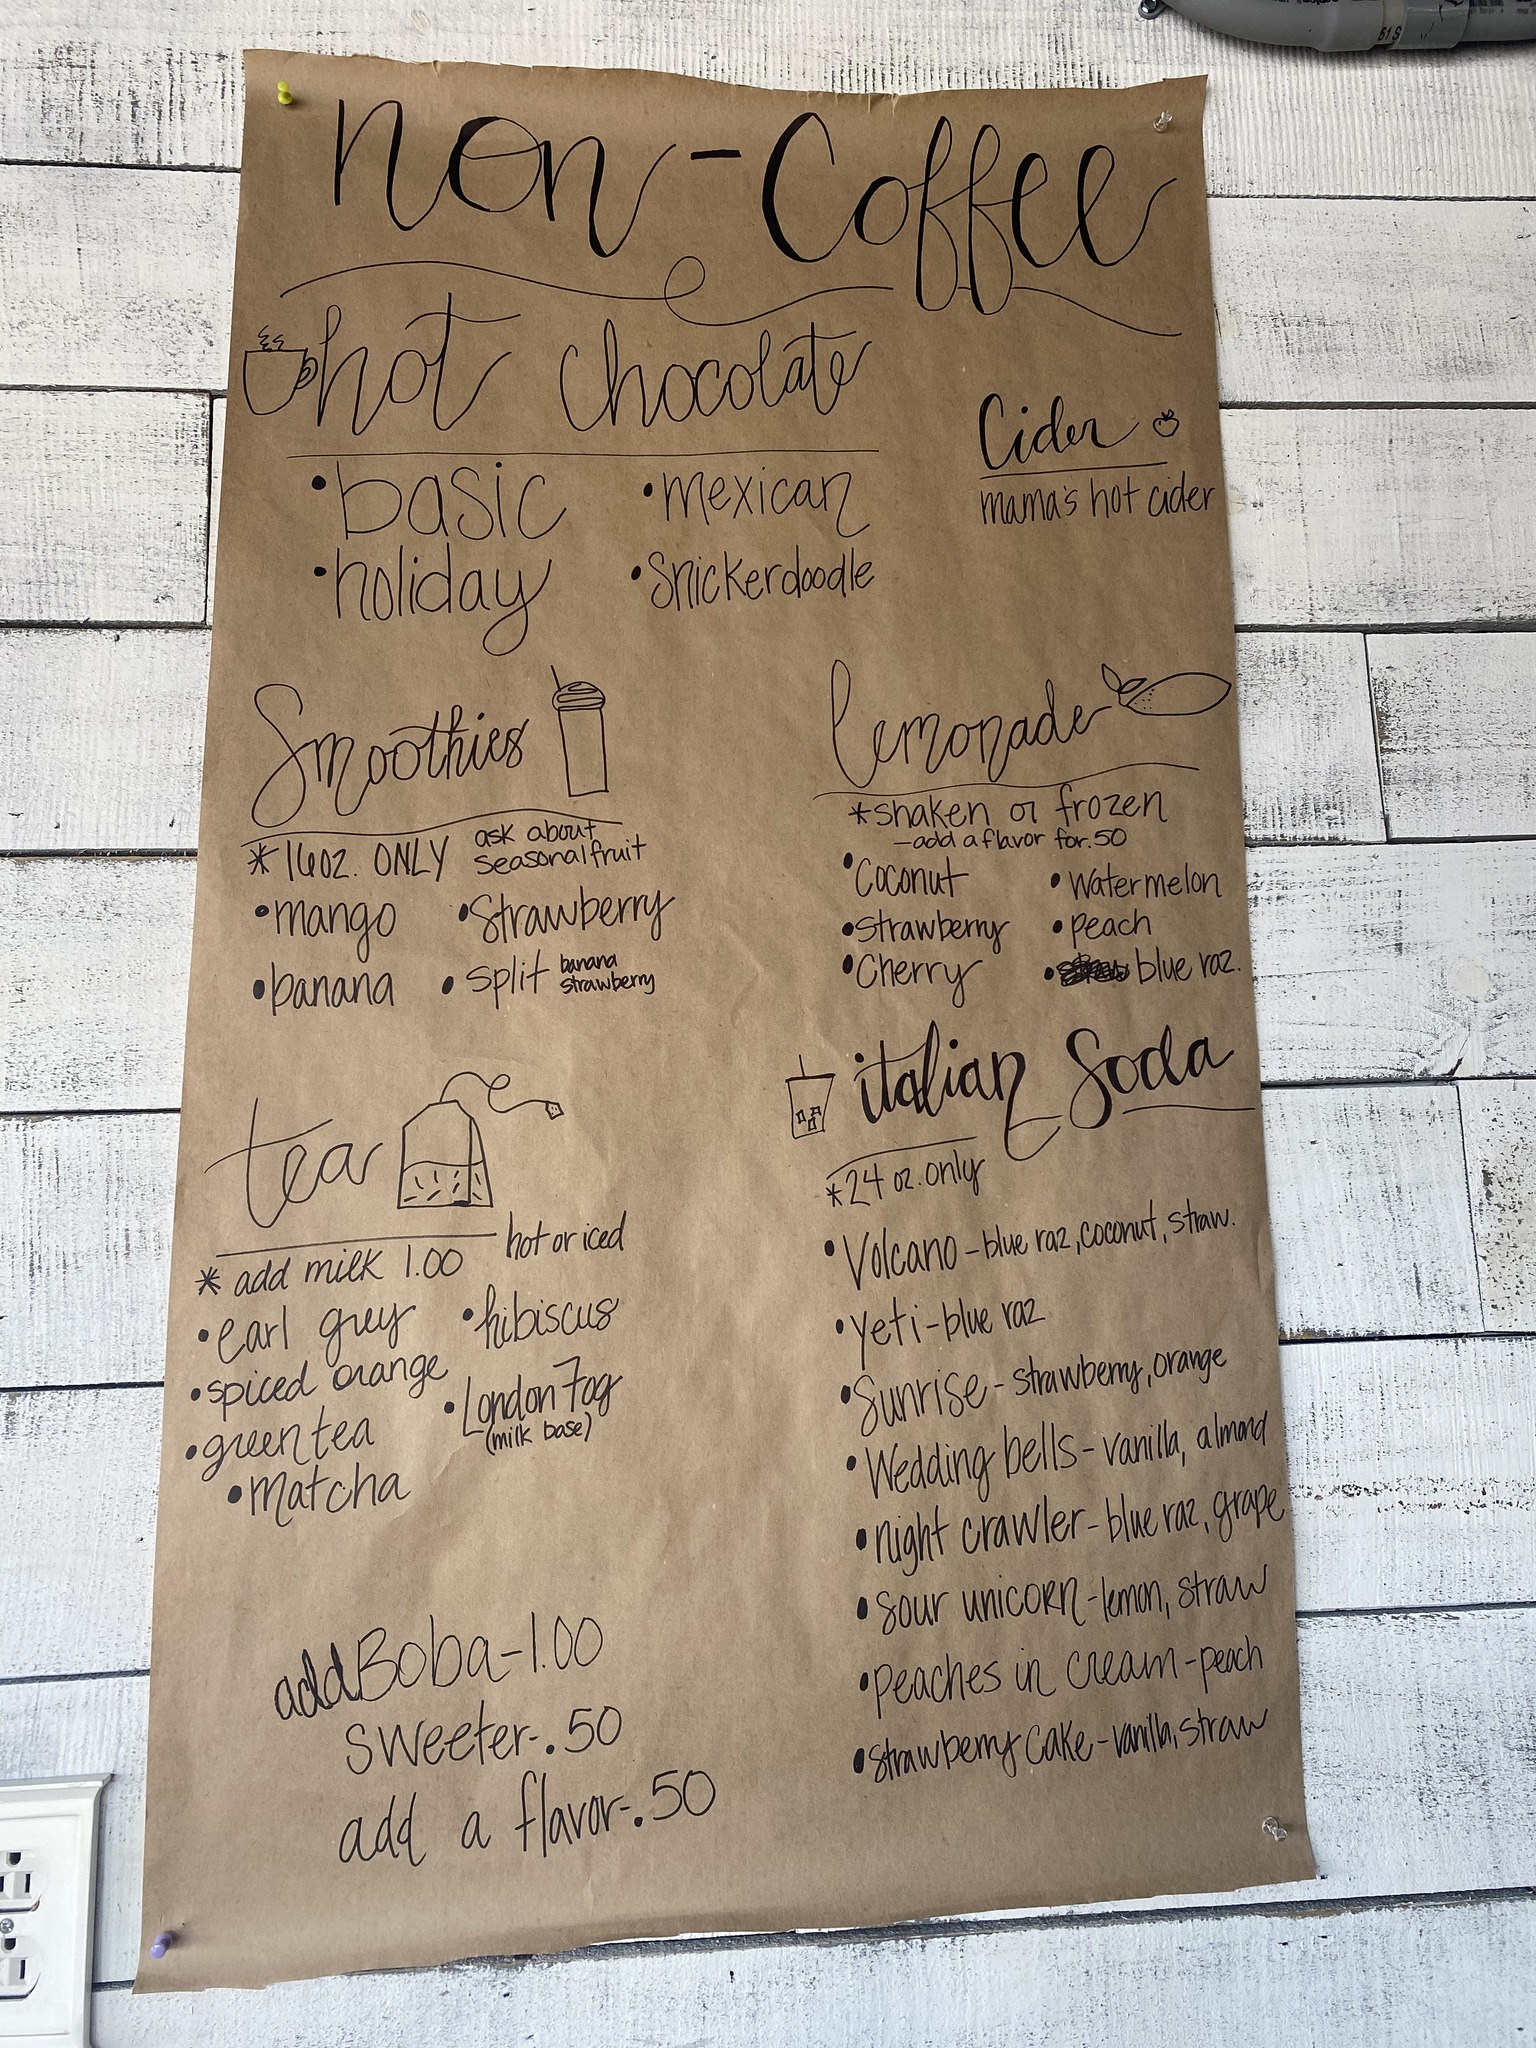 non-Coffee
hot chocolate
•basic
•mexican
•holiday
•Snickerdoodle
Cider
mama's hot cider
Smoothies
*16oz. ONLY
ask about
seasonal fruit
•mango
•Strawberry
•banana
•split banana
strawberry
lemonade
*shaken or frozen
-add a flavor for .50
•Coconut
•Watermelon
•strawberry
•peach
•Cherry
• blue raz.
tea
hot or iced
* add milk 1.00
•earl grey
•hibiscus
•spiced orange
•London Fog
(milk base)
•green tea
•matcha
italian Soda
*24 oz. only
•Volcano-blue raz, coconut, straw.
•Yeti-blue raz
•Sunrise-strawberry, orange
•Wedding bells-vanilla, almond
•night crawler-blue raz, grape
•sour unicorn-lemon, straw
•peaches in cream-peach
•strawberry cake-vanilla, straw
add Boba-1.00
sweeter-.50
add a flavor-.50
51S